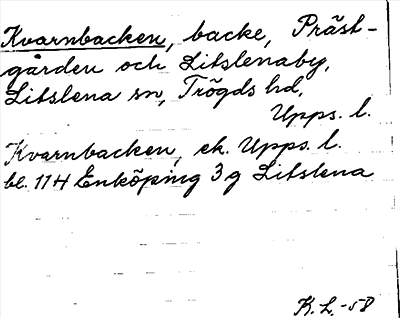 Kvarnbacken, backe, Präst-
gården och Litslenaby,
Litslena sn, Trögds hd,
Upps. l.
Kvarnbacken, ek. Upps. l.
bl. 11H Enköping 3g Litslena
K.L.-58